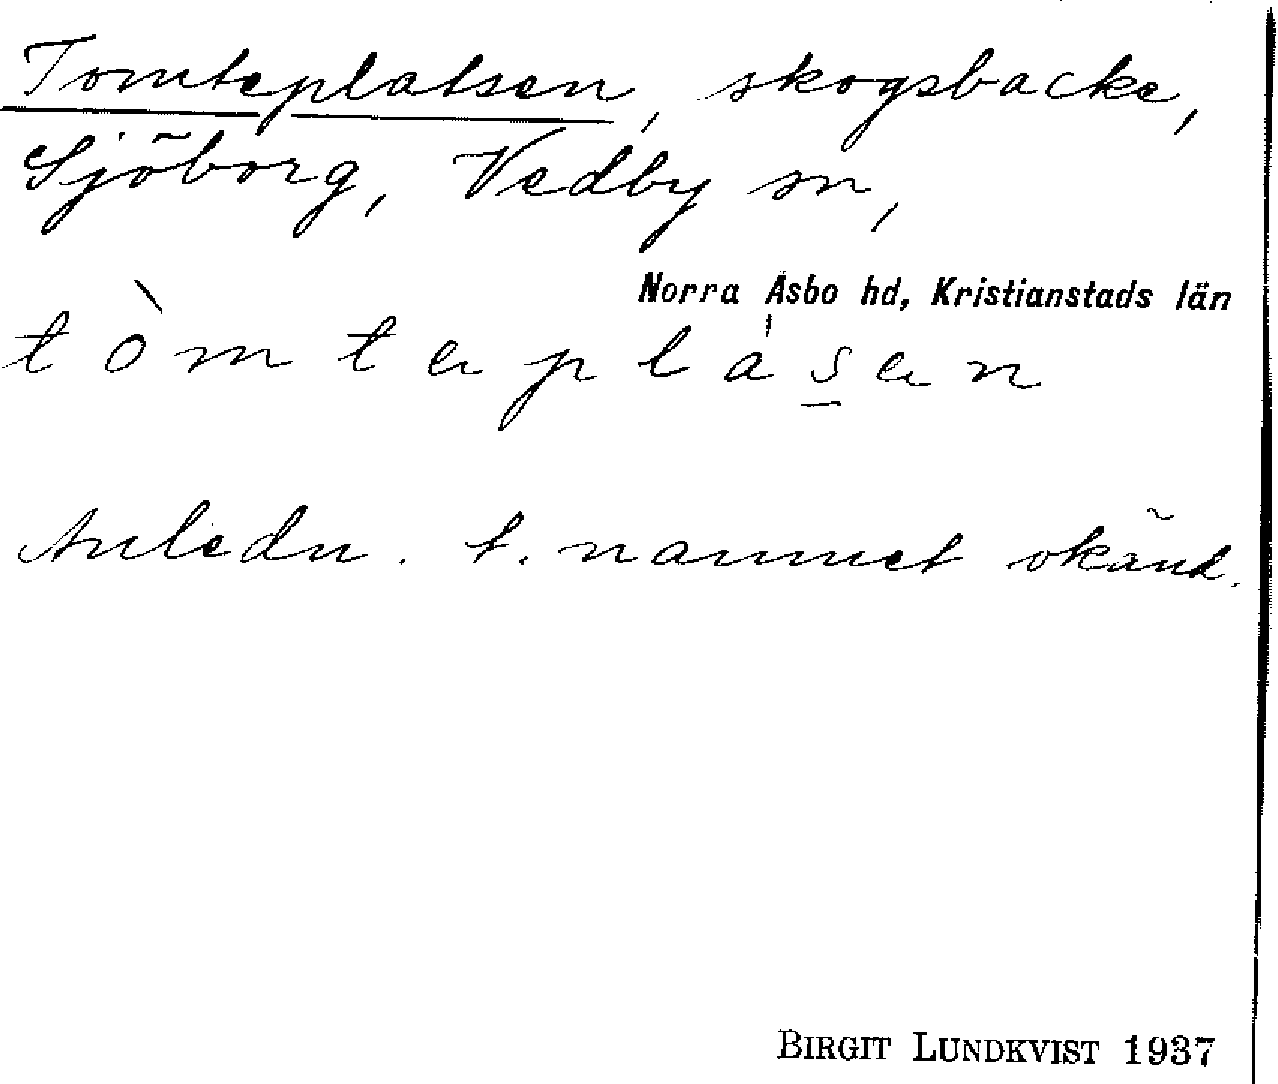 Tomteplatsen, skogsbacke,
Sjöborg, Vedby sn,
Norra Åsbo hd, Kristianstads län
tòmteplasen
Anledn. t. namnet okänd.
BIRGIT LUNDKVIST 1937